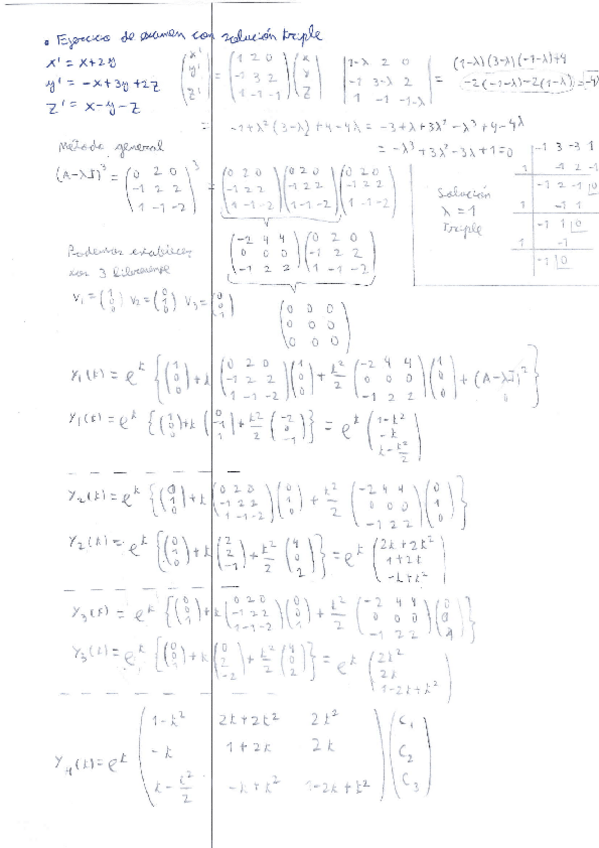 • Ejercicio de examen con solución triple
x' = x+2y
y' = -x+3y+2z
z' = x-y-z
(x' y' z') = (1 2 0 / -1 3 2 / 1 -1 -1)(x y z)
|1-λ 2 0 / -1 3-λ 2 / 1 -1 -1-λ| = (1-λ)(3-λ)(-1-λ)+4 -2(-1-λ)-2(1-λ) = -4
= -1+λ²(3-λ)+4-4λ = -3+λ+3λ²-λ³+4-4λ
= -λ³+3λ²-3λ+1=0
Método general
(A-λI)³ = (0 2 0 / -1 2 2 / 1 -1 -2)³ = (0 2 0 / -1 2 2 / 1 -1 -2)(0 2 0 / -1 2 2 / 1 -1 -2)(0 2 0 / -1 2 2 / 1 -1 -2)
Solución
λ = 1
triple
-1 3 -3 1
1 -1 2 -1
-1 2 -1 |0
1 -1 1
-1 1 |0
1 -1
-1 |0
(-2 4 4 / 0 0 0 / -1 2 2)(0 2 0 / -1 2 2 / 1 -1 -2)
Podemos establecer
los 3 libremente
V₁=(1 0 0) V₂=(0 1 0) V₃=(0 0 1)
(0 0 0 / 0 0 0 / 0 0 0)
Y₁(t) = e^t {(1 0 0)+t(0 2 0 / -1 2 2 / 1 -1 -2)(1 0 0)+t²/2 (-2 4 4 / 0 0 0 / -1 2 2)(1 0 0)+(A-λI)²}
Y₁(t) = e^t {(1 0 0)+t(0 -1 1)+t²/2 (-2 0 -1)} = e^t (1-t² / -t / t-t²/2)
Y₂(t) = e^t {(0 1 0)+t(0 2 0 / -1 2 2 / 1 -1 -2)(0 1 0)+t²/2 (-2 4 4 / 0 0 0 / -1 2 2)(0 1 0)}
Y₂(t) = e^t {(0 1 0)+t(2 2 -1)+t²/2 (4 0 2)} = e^t (2t+2t² / 1+2t / -t+t²)
Y₃(t) = e^t {(0 0 1)+t(0 2 0 / -1 2 2 / 1 -1 -2)(0 0 1)+t²/2 (-2 4 4 / 0 0 0 / -1 2 2)(0 0 1)}
Y₃(t) = e^t {(0 0 1)+t(0 2 -2)+t²/2 (4 0 2)} = e^t (2t² / 2t / 1-2t+t²)
Y_H(t) = e^t (1-t² 2t+2t² 2t² / -t 1+2t 2t / t-t²/2 -t+t² 1-2t+t²)(C₁ C₂ C₃)